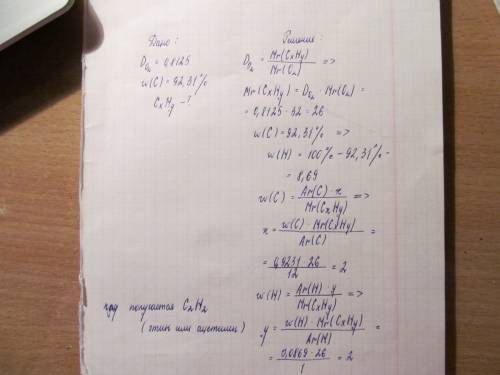 Дано:
D_O₂ = 0,8125
w(C) = 92,31%
CxHy - ?
Решение:
D_O₂ = Mr(CxHy) / Mr(O₂) =>
Mr(CxHy) = D_O₂ · Mr(O₂) =
= 0,8125 · 32 = 26
w(C) = 92,31% =>
w(H) = 100% - 92,31% =
= 8,69
w(C) = Ar(C) · x / Mr(CxHy) =>
x = w(C) · Mr(CxHy) / Ar(C) =
= 0,9231 · 26 / 12 = 2
w(H) = Ar(H) · y / Mr(CxHy) =>
y = w(H) · Mr(CxHy) / Ar(H) =
= 0,0869 · 26 / 1 = 2
получается C₂H₂
(этин или ацетилен)